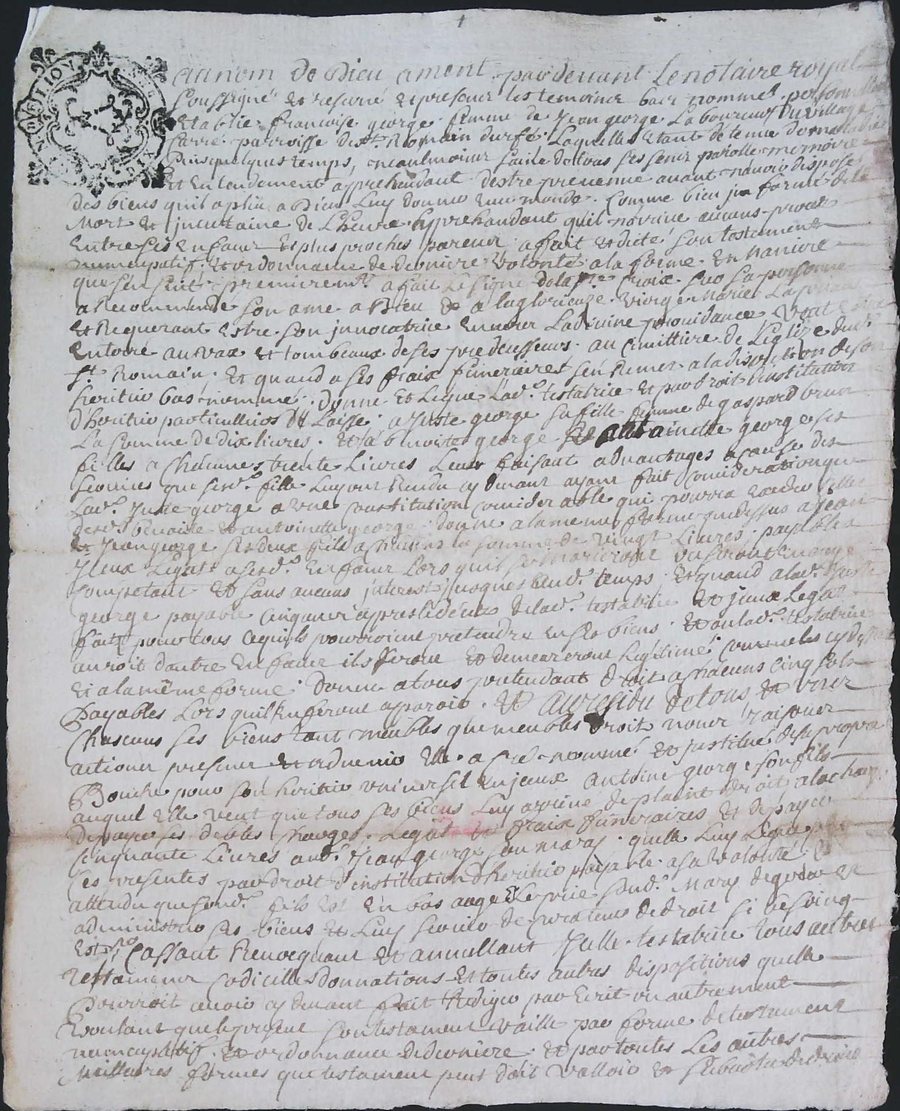 au nom de Dieu ament pardevant Le notaire royal
soussigné et reservé et presens les temoins bas nommes personnellement
Establie francoise george femme de Jean george laboureur du village
parroisse de St Romain durfé Laquelle Estant detenue de maladie
Puis quelques temps, neaulmoins saine de tous ses sens parolle memoire
Et Entendement apprehandant destre prevenue avant navoir disposé
des biens quil a pleu a Dieu Luy donner a ce monde. Comme bien informé de la
Mort et incertaine de Lheure apprehandant quil narrive aucuns procès
Entre ses Enfans Et plus proches parens a fait et dicté son testament
nuncupatif, et ordonnance de derniere volonté a la forme et maniere
que sensuit premierement a fait Le signe de la Ste Croix sur sa personne
a Recommandé son ame a Dieu et a la glorieuse vierge Marie La priant
et Requerant Estre son invocatrice Envers La divine providance veut Estre
Enterré au vax et tombeaux de ses predecesseurs au cimittiere de Leglize dud.
St Romain. Et quand a ses fraix funeraires sen Remet a la disposition de son
heritier bas nommé. donne et Legue Lad. testatrice et par droit dinstitution
dheritier particulliers de Laisse a Juste george sa fille femme de gaspard brun
La somme de dix livres. Et a benoiste george et antoinette george ses
filles a chacunes trente Livres Leur faisant advantages a cause des
services que sesd. filles Luy ont Rendu cy devant ayant fait consideration que
Lad. Juste george a une constitution considerable qui pourra
benoiste et antoinette george. donne a la meme forme que dessus a Jean
et Jean george ses deux fils a chacuns la somme de vingt Livres payables
Iceux Legats a sesd. Enfans Lors quils se mariront ou seront En aage
competant et sans aucuns interest jusques aud. temps. Et quand a lad. Juste
george payable cinq ans apres le deces de lad. testatrice Et iceux Legats
fait pour tous ce quils pourroint pretendre En ses biens Et ou lad. testatrice
auroit dautre Enfans ils seront et demeureront Legitimé comme les cy dessus
Et a la même forme. donne a tous pretendant droit a chacuns cinq sols
payables Lors quil Enferont apparoir. Et au residu de tous et uns
Chascuns ses biens tant meubles que meubles droit noms raisons
actions presens et advenir Elle a fait nommé et institué de sa propre
Bouche pour son heritier universel Enjceux Antoine george son fils
auquel Elle veut que tous ses biens Luy arrive de plaint droit a la charge
de payer ses debtes charges Legat et fraix funeraires et de payer
cinquante Livres aud. Jean george son mary quelle Luy Legue par
Ces presentes par droit dinstitution dheritier payable a sa volonté Et
attendu que sond. fils Est En bas aage Elle prie sond. Mary de gerer et
administrer ses biens et Luy servir de curateur de droit si besoing
Est. Cassant Revocquant et annullant Icelle testatrice tous autres
testamens codicilles donnations et toutes autres dispositions quelle
Pourroit avoir cy devant fait Rediger par Escrit ou autrement
voulant que le present son testament vaille par forme de testament
nuncupatif, et ordonnance de derniere et par toutes Les autres
Meilleures formes que testament peut doit valloir et subsister de droit